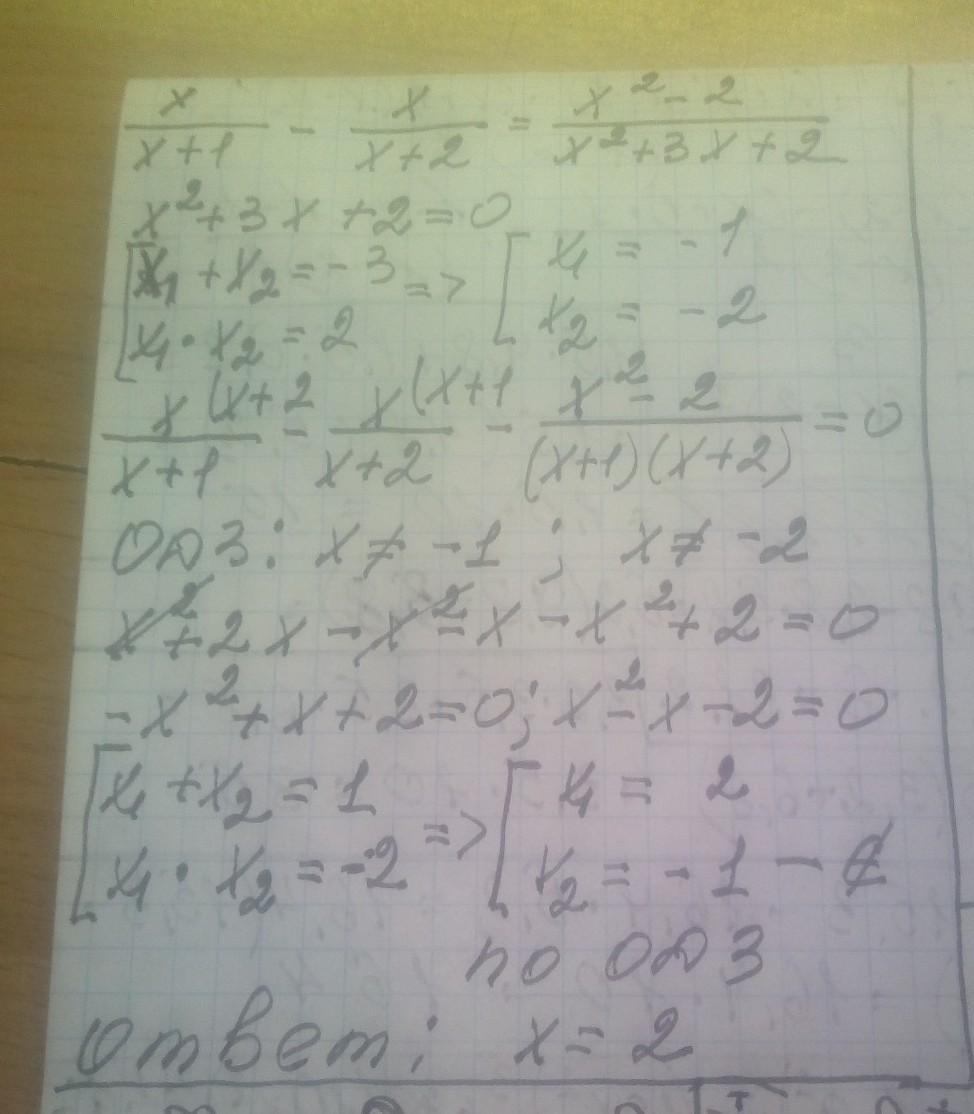 x/(x+1) - x/(x+2) = (x²-2)/(x²+3x+2)
x²+3x+2=0
[x₁+x₂=-3 => [x₁=-1
[x₁·x₂=2 [x₂=-2
x(x+2/(x+1) - x(x+1/(x+2) - (x²-2)/((x+1)(x+2)) =0
ОДЗ: x≠-1; x≠-2
x²+2x-x²-x-x²+2=0
-x²+x+2=0; x²-x-2=0
[x₁+x₂=1 => [x₁=2
[x₁·x₂=-2 [x₂=-1-∉
по ОДЗ
Ответ: x=2